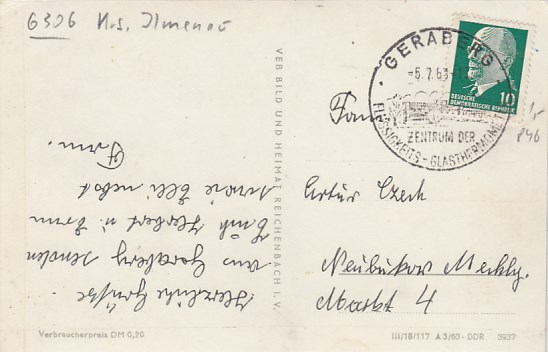 6306 Krs. Ilmenau
GERABERG
-5.7.63-
ZENTRUM DER
FLÜSSIGKEITS-GLASTHERMOMETER
DEUTSCHE
DEMOKRATISCHE REPUBLIK
10
1,-
P46
VEB BILD UND HEIMAT REICHENBACH I. V.
Herzliche Grüsse
aus Geraberg senden
Euch Herbert u. Frau
sowie Elli nebst
Fam.
Fam.
Artur Czech
Neubukow Meckl.
Markt 4
Verbraucherpreis DM 0,20
III/18/117 A 3/63 - DDR 3937